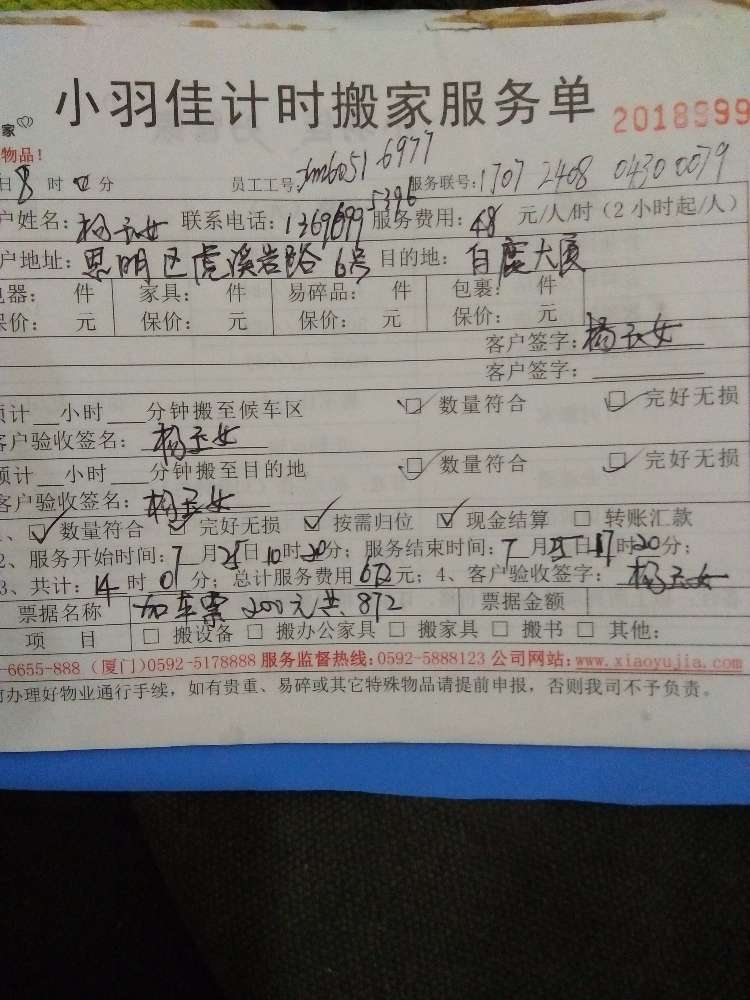 小羽佳计时搬家服务单
家
2018999
物品!
日8时 分 员工工号: xm6051 6977 服务联号:1707 2408 0430 0079
户姓名:杨玉女 联系电话:1369699 5396 服务费用:48 元/人/时(2小时起/人)
户地址:思明区虎溪岩路6号 目的地:百度大厦
电器: 件 家具: 件 易碎品: 件 包裹: 件
保价: 元 保价: 元 保价: 元 保价: 元
客户签字:杨玉女
客户签字:
预计__小时___分钟搬至候车区 ☑ 数量符合 ☑ 完好无损
客户验收签名:杨玉女
预计__小时___分钟搬至目的地 ☑ 数量符合 ☑ 完好无损
客户验收签名:杨玉女
1、☑ 数量符合 ☑ 完好无损 ☑ 按需归位 ☑ 现金结算 □ 转账汇款
2、服务开始时间:7月25日10时20分;服务结束时间:7月25日17时20分;
3、共计:14时0分;总计服务费用672元;4、客户验收签字:杨玉女
票据名称 加车票200元共872 票据金额
项 目 □ 搬设备 □ 搬办公家具 □ 搬家具 □ 搬书 □ 其他:
-6655-888 (厦门)0592-5178888 服务监督热线:0592-5888123 公司网站:www.xiaoyujia.com
办理好物业通行手续,如有贵重、易碎或其它特殊物品请提前申报,否则我司不予负责。